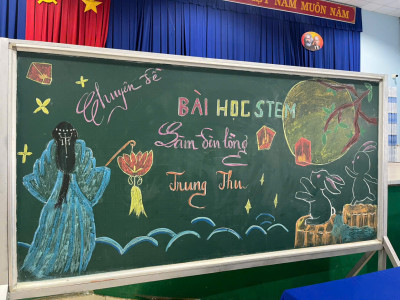 ỆT NAM MUÔN NĂM
Chuyên đề
BÀI HỌC STEM
Làm đèn lồng
Trung Thu